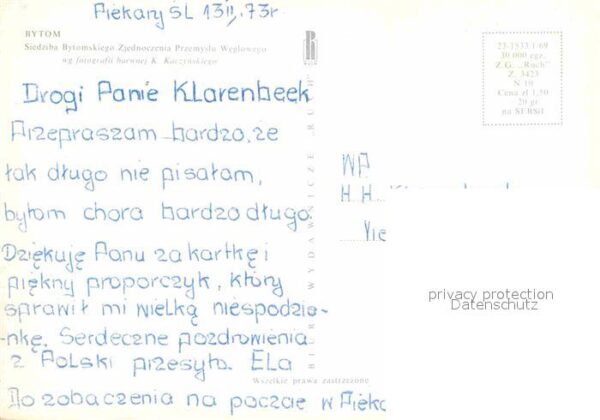 Piekary Śl. 13 II. 73r
BYTOM
Siedziba Bytomskiego Zjednoczenia Przemysłu Węglowego
wg fotografii barwnej K. Kaczyńskiego
23-1833 I-69
30.000 egz.
Z.G. „Ruch"
Z. 3423
N 10
Cena zł 1,50
20 gr
na SFBSiI
Drogi Panie Klarenbeek
Przepraszam bardzo, że
tak długo nie pisałam,
byłam chora bardzo długo.
Dziękuję Panu za kartkę i
piękny proporczyk, który
sprawił mi wielką niespodzia-
-nkę. Serdeczne pozdrowienia
z Polski przesyła. Ela
Do zobaczenia na poczcie w Pieka
Wszelkie prawa zastrzeżone
BIURO WYDAWNICZE RUCH
WP
H.H.
privacy protection
Datenschutz